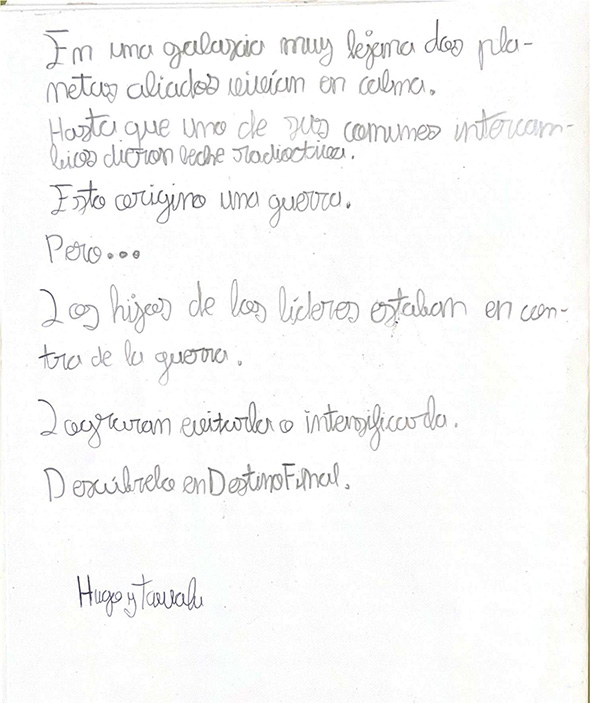 En una galaxia muy lejana dos pla-
netas aliados vivían en calma.
Hasta que uno de sus comunes intercam-
bios dieron leche radioctiva.
Esto origino una guerra.
Pero...
Los hijos de los líderes estaban en con-
tra de la guerra.
Lograran evitarla o intensificarla.
Descúbrelo en Destino Final.
Hugo y